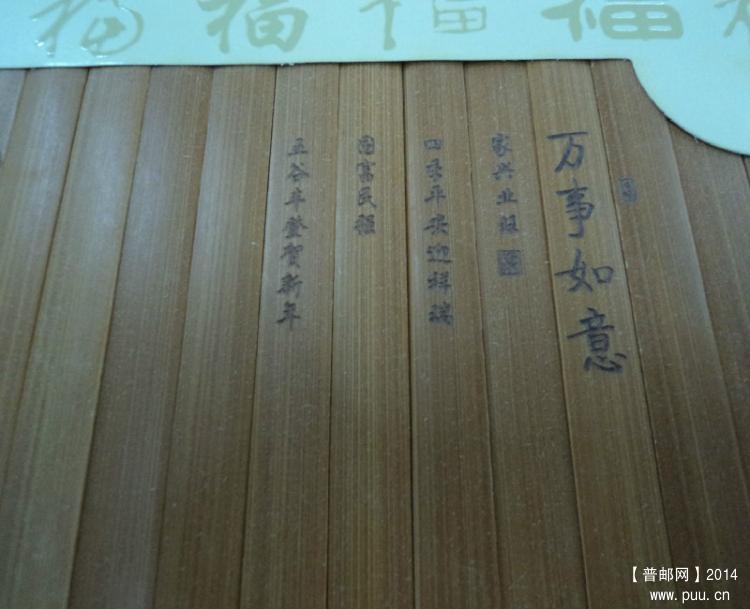 福 福 福 福
万事如意
家兴业旺
四季平安迎祥瑞
国富民强
五谷丰登贺新年
【普邮网】2014
www.puu.cn